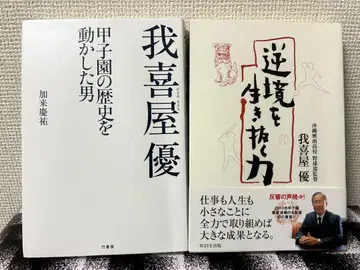 我喜屋 優
甲子園の歴史を
動かした男
加来慶祐
竹書房
逆境を
生き抜く力
沖縄興南高校 野球部監督
我喜屋 優
反響の声続々!
仕事も人生も
小さなことに
全力で取り組めば
大きな成果となる。
WAVE出版